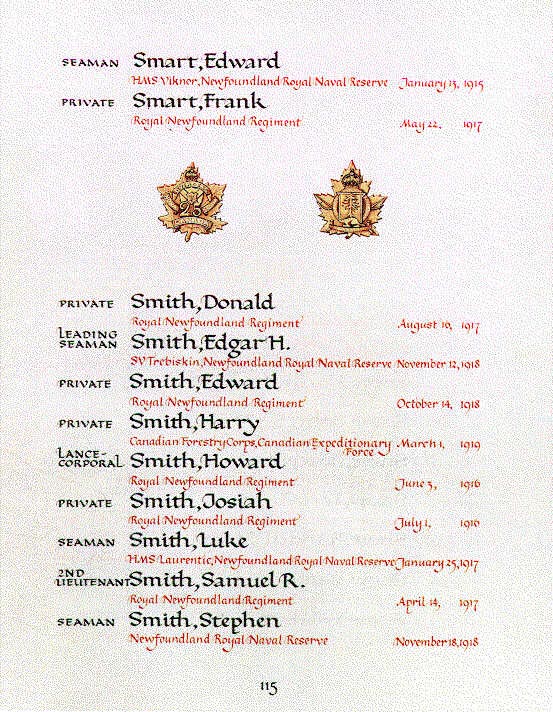 SEAMAN Smart, Edward
HMS Viknor, Newfoundland Royal Naval Reserve January 13, 1915
PRIVATE Smart, Frank
Royal Newfoundland Regiment May 22, 1917
28
PRIVATE Smith, Donald
Royal Newfoundland Regiment August 16, 1917
LEADING SEAMAN Smith, Edgar H.
SV Trebiskin, Newfoundland Royal Naval Reserve November 12, 1918
PRIVATE Smith, Edward
Royal Newfoundland Regiment October 14, 1918
PRIVATE Smith, Harry
Canadian Forestry Corps, Canadian Expeditionary Force March 1, 1919
LANCE-CORPORAL Smith, Howard
Royal Newfoundland Regiment June 3, 1916
PRIVATE Smith, Josiah
Royal Newfoundland Regiment July 1, 1916
SEAMAN Smith, Luke
HMS Laurentic, Newfoundland Royal Naval Reserve January 25, 1917
2ND LIEUTENANT Smith, Samuel R.
Royal Newfoundland Regiment April 14, 1917
SEAMAN Smith, Stephen
Newfoundland Royal Naval Reserve November 18, 1918
115